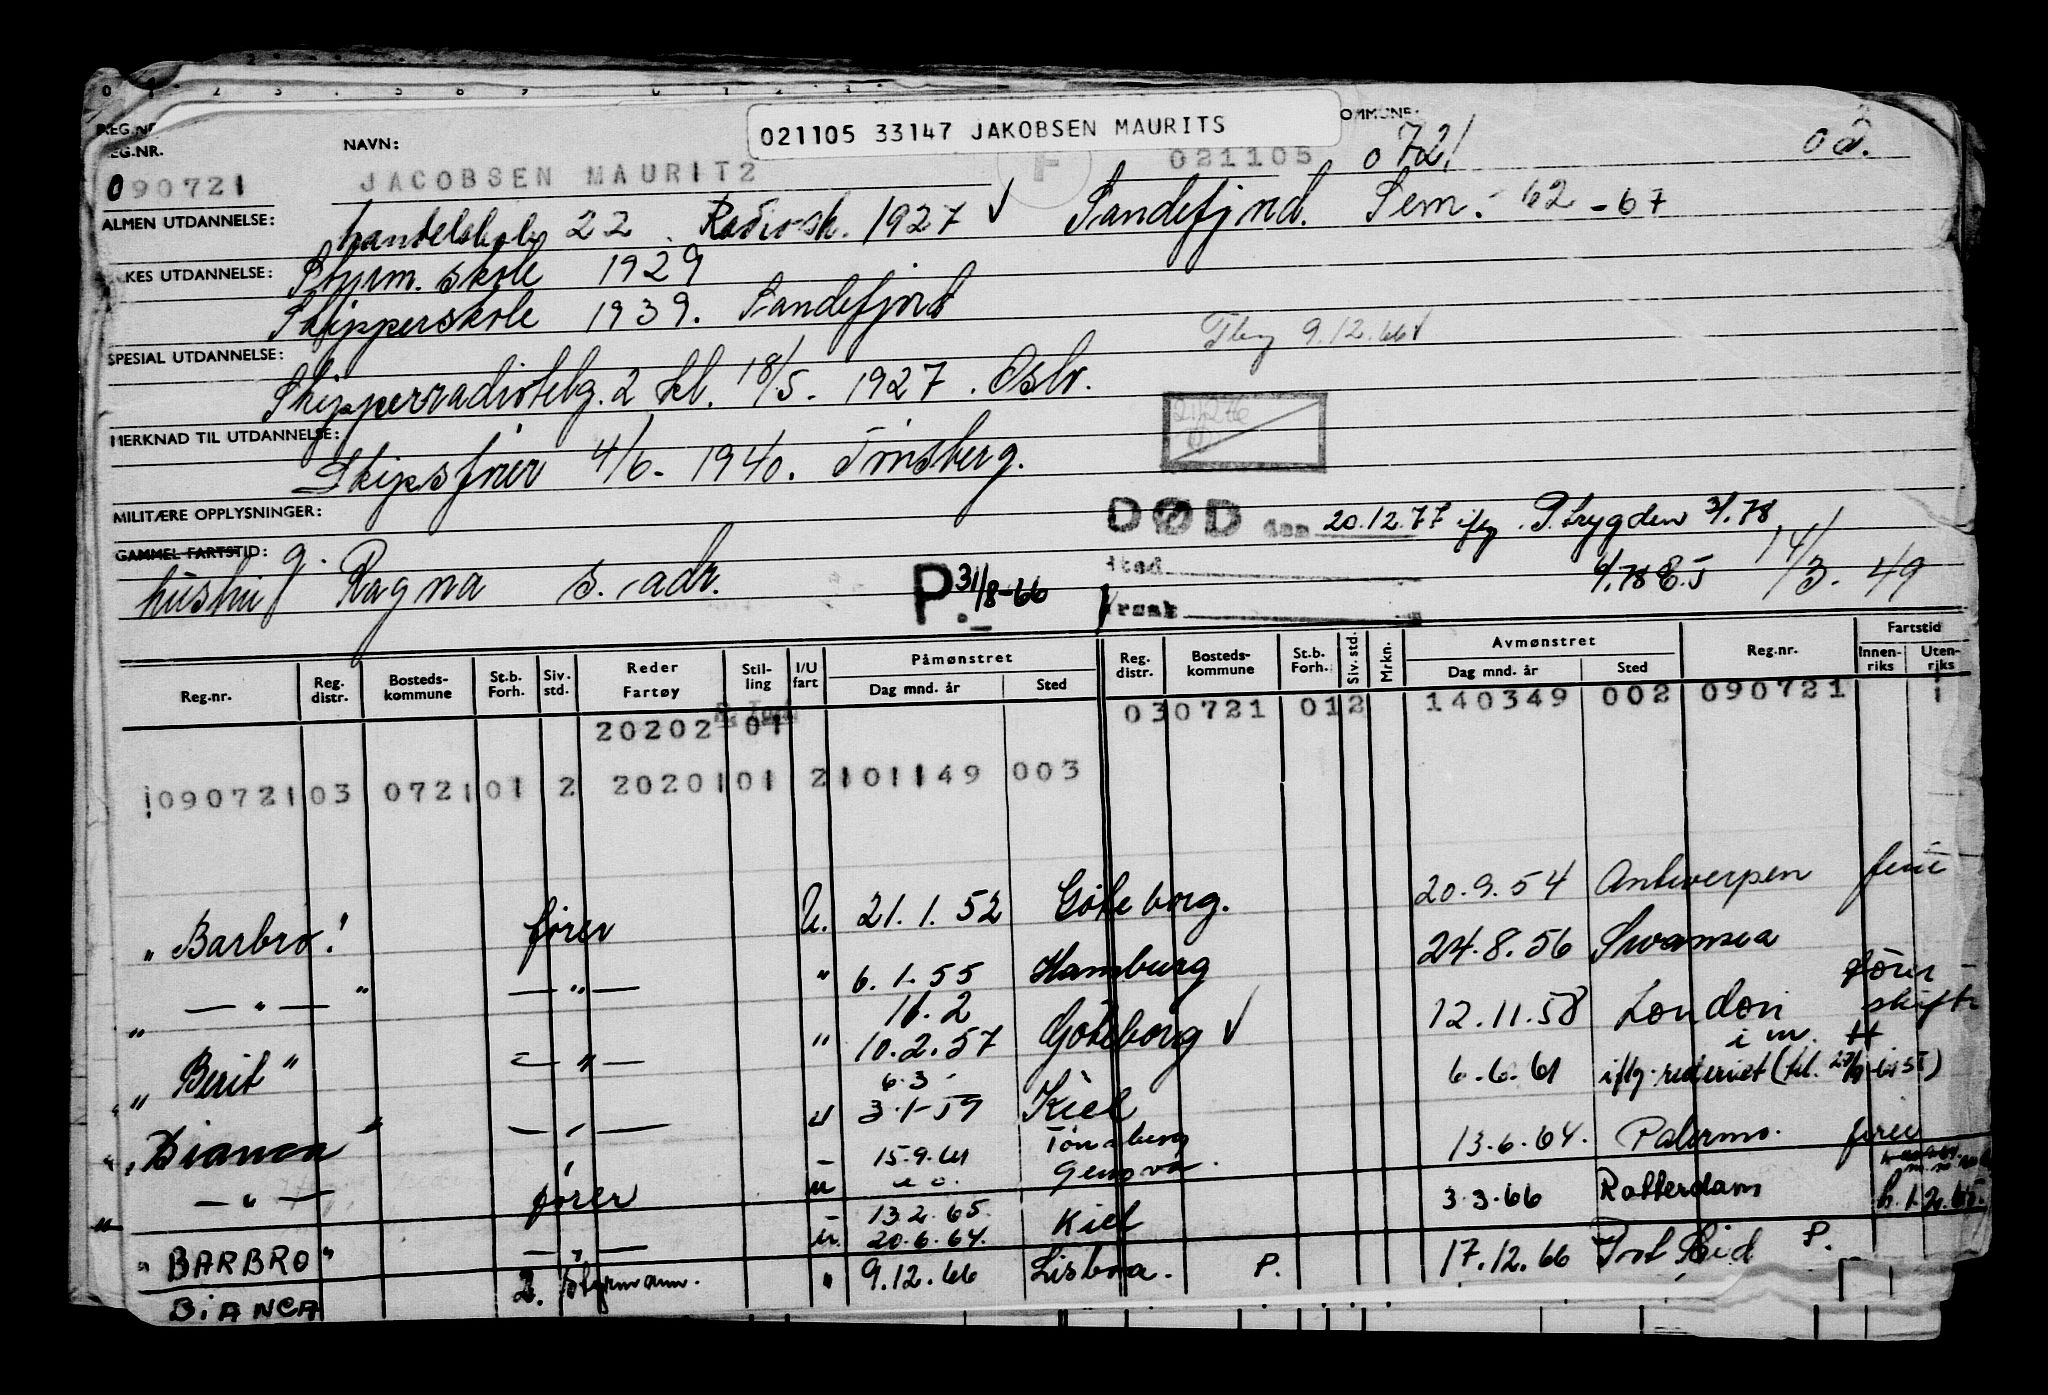 021105 33147 JAKOBSEN MAURITS
REG.NR. NAVN: OMMUNE:
090721 JACOBSEN MAURITZ F 021105 0721 02.
ALMEN UTDANNELSE: handelskole 22 Radiosk. 1927 Sandefjord. Sem. 62-67
KES UTDANNELSE: Styrm. skole 1929
Skipperskole 1939. Sandefjord
9.12.66
SPESIAL UTDANNELSE:
Skipperradiotelg. 2 kl. 18/5. 1927. Oslo.
MERKNAD TIL UTDANNELSE:
Skipsfører 4/6-1940. Tønsberg.
MILITÆRE OPPLYSNINGER:
DØD den 20.12.77 iflg. P.trygden 3/1.78
GAMMEL FARTSTID: g.
hustru Ragna s. adr. P. 31/8-66
sted 14/3.49
årsak
Reg.nr. Reg. distr. Bosteds- kommune St.b. Forh. Siv. std. Reder Fartøy Stil- ling I/U fart Påmønstret Dag mnd. år Sted Reg. distr. Bosteds- kommune St.b. Forh. Siv. std. Mrkn. Avmønstret Dag mnd. år Sted Reg.nr. Fartstid Innen- riks Uten- riks
20202 01 030721 012 140349 002 090721 1
090721 03 0721 01 2 20201 01 2 101149 003
"Barbro" fører U. 21.1.52 Göteborg. 20.9.54 Antwerpen ferie
" — " — " — " — " 6.1.55 Hamburg 24.8.56 Swansea
11.2
"Berit" — " — " 10.2.57 Göteborg 12.11.58 London fører skifte
6.3
"Bianca" — " — " 3.1-59 Kiel 6.6.61 iflg. rederiet
— " — fører 15.9.61 Tønsberg Genova. 13.6.64. Palermo. ferie
"BARBRO" — " — 13.2.65. 20.6.64. Kiel 3.3.66 Rotterdam
BIANCA 2. styrmann. " 9.12.66 Lisboa. P. 17.12.66 Port Said P.